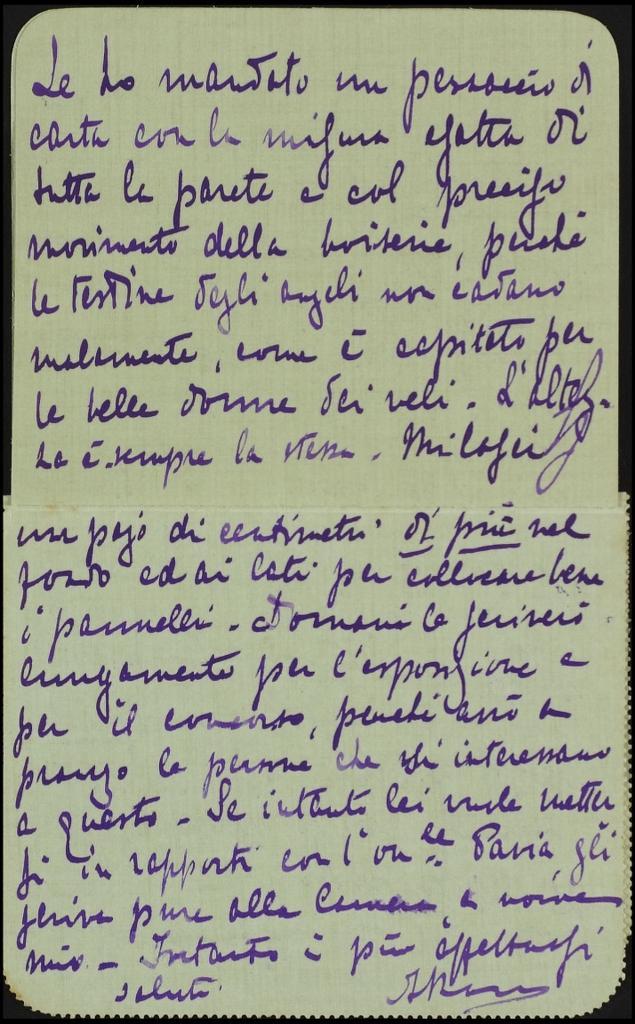 Le ho mandato un pezzaccio di
carta con la misura esatta di
tutta la parete e col preciso
movimento della boiserie, perché
le testine degli angeli non cadano
malamente, come è capitato per
le belle donne dei veli. L'altez-
za è sempre la stessa. Mi lasci
un pajo di centimetri di più nel
fondo ed ai lati per collocare bene
i pannelli. Domani le scriverò
lungamente per l'esposizione e
per il concorso, perché avrò a
pranzo le persone che si interessano
a questo. Se intanto lei vuole metter
si in rapporti con l'on.le Pavia, gli
scriva pure alla Camera, a nome
mio. Intanto i più affettuosi
saluti